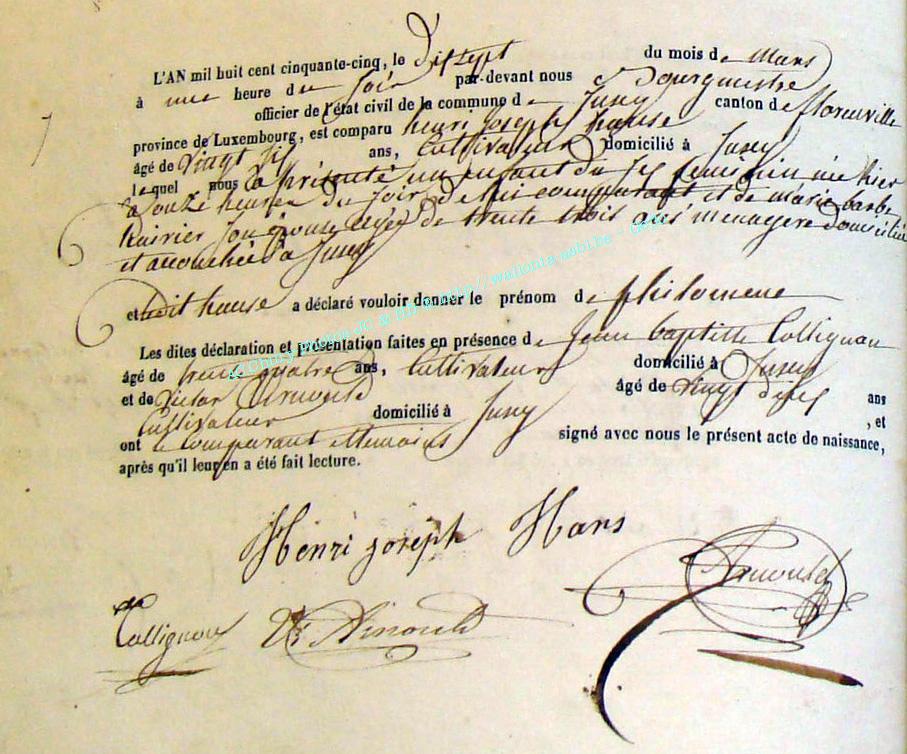 L'AN mil huit cent cinquante-cinq, le dix sept du mois de Mars
à une heure du soir par-devant nous Bourgmestre
officier de l'état civil de la commune de Jusey canton de florenville
province de Luxembourg, est comparu henri Joseph hause
âgé de vingt six ans, Cultivateur domicilié à Jusey
lequel nous a présenté un enfant du sexe feminin née hier
a onze heures du soir de lui comparant et de marie barbe
son épouse agée de trente trois ans menagere domiciliée
et accouchée a Jusey
et dit hause a déclaré vouloir donner le prénom de philomene
Les dites déclaration et présentation faites en présence de Jean baptiste Collignon
âgé de trente quatre ans, Cultivateur domicilié à Jusey
et de Victor Arnould âgé de vingt six ans
Cultivateur domicilié à Jusey , et
ont le comparant et temoins signé avec nous le présent acte de naissance,
après qu'il leur en a été fait lecture.
Henri joseph Hans
Collignon Vr Arnould
Arnould